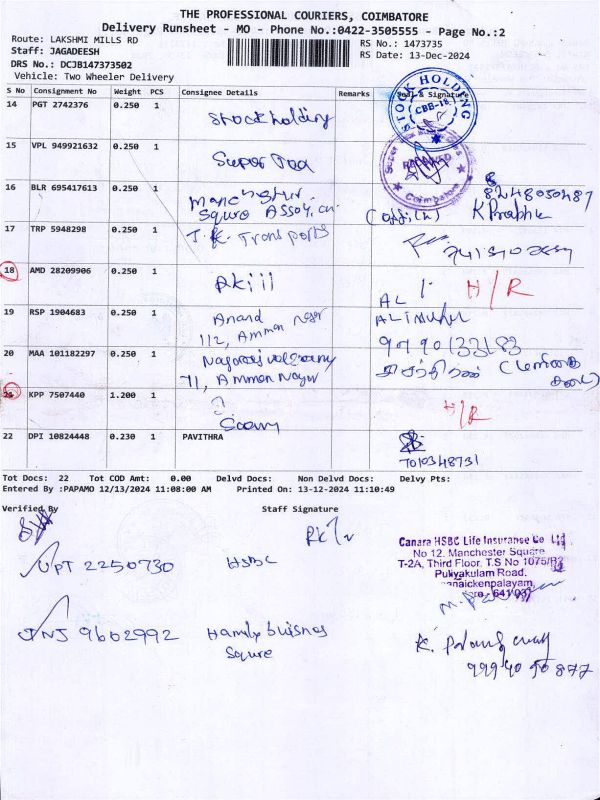 THE PROFESSIONAL COURIERS, COIMBATORE
Delivery Runsheet - MO - Phone No.:0422-3505555 - Page No.:2
Route: LAKSHMI MILLS RD
RS No.: 1473735
Staff: JAGADEESH
RS Date: 13-Dec-2024
DRS No.: DCJB147373502
Vehicle: Two Wheeler Delivery
S No Consignment No Weight PCS Consignee Details Remarks Seal & Signature
14 PGT 2742376 0.250 1 Stock holding
STOCK HOLDING
CBB-18
15 VPL 949921632 0.250 1 Super
Coimbatore
16 BLR 695417613 0.250 1 Manchester
Squre Assoy.
8248050487
K Prabhu
17 TRP 5948298 0.250 1 J.K. Transports
18 AMD 28209906 0.250 1 H/R
19 RSP 1904683 0.250 1 Anand
112, Amman
9790133183
20 MAA 101182297 0.250 1
71, Amman Nagar
21 KPP 7507440 1.200 1 H/R
22 DPI 10824448 0.230 1 PAVITHRA
7010348731
Tot Docs: 22 Tot COD Amt: 0.00 Delvd Docs: Non Delvd Docs: Delvy Pts:
Entered By :PAPAMO 12/13/2024 11:08:00 AM Printed On: 13-12-2024 11:10:49
Verified By Staff Signature
UPT 2250730 HSBC
Canara HSBC Life Insurance Co Ltd
No 12. Manchester Square
T-2A, Third Floor, T.S No 1075/
Puliyakulam Road,
JNJ 9602992
Squre
99940 90877